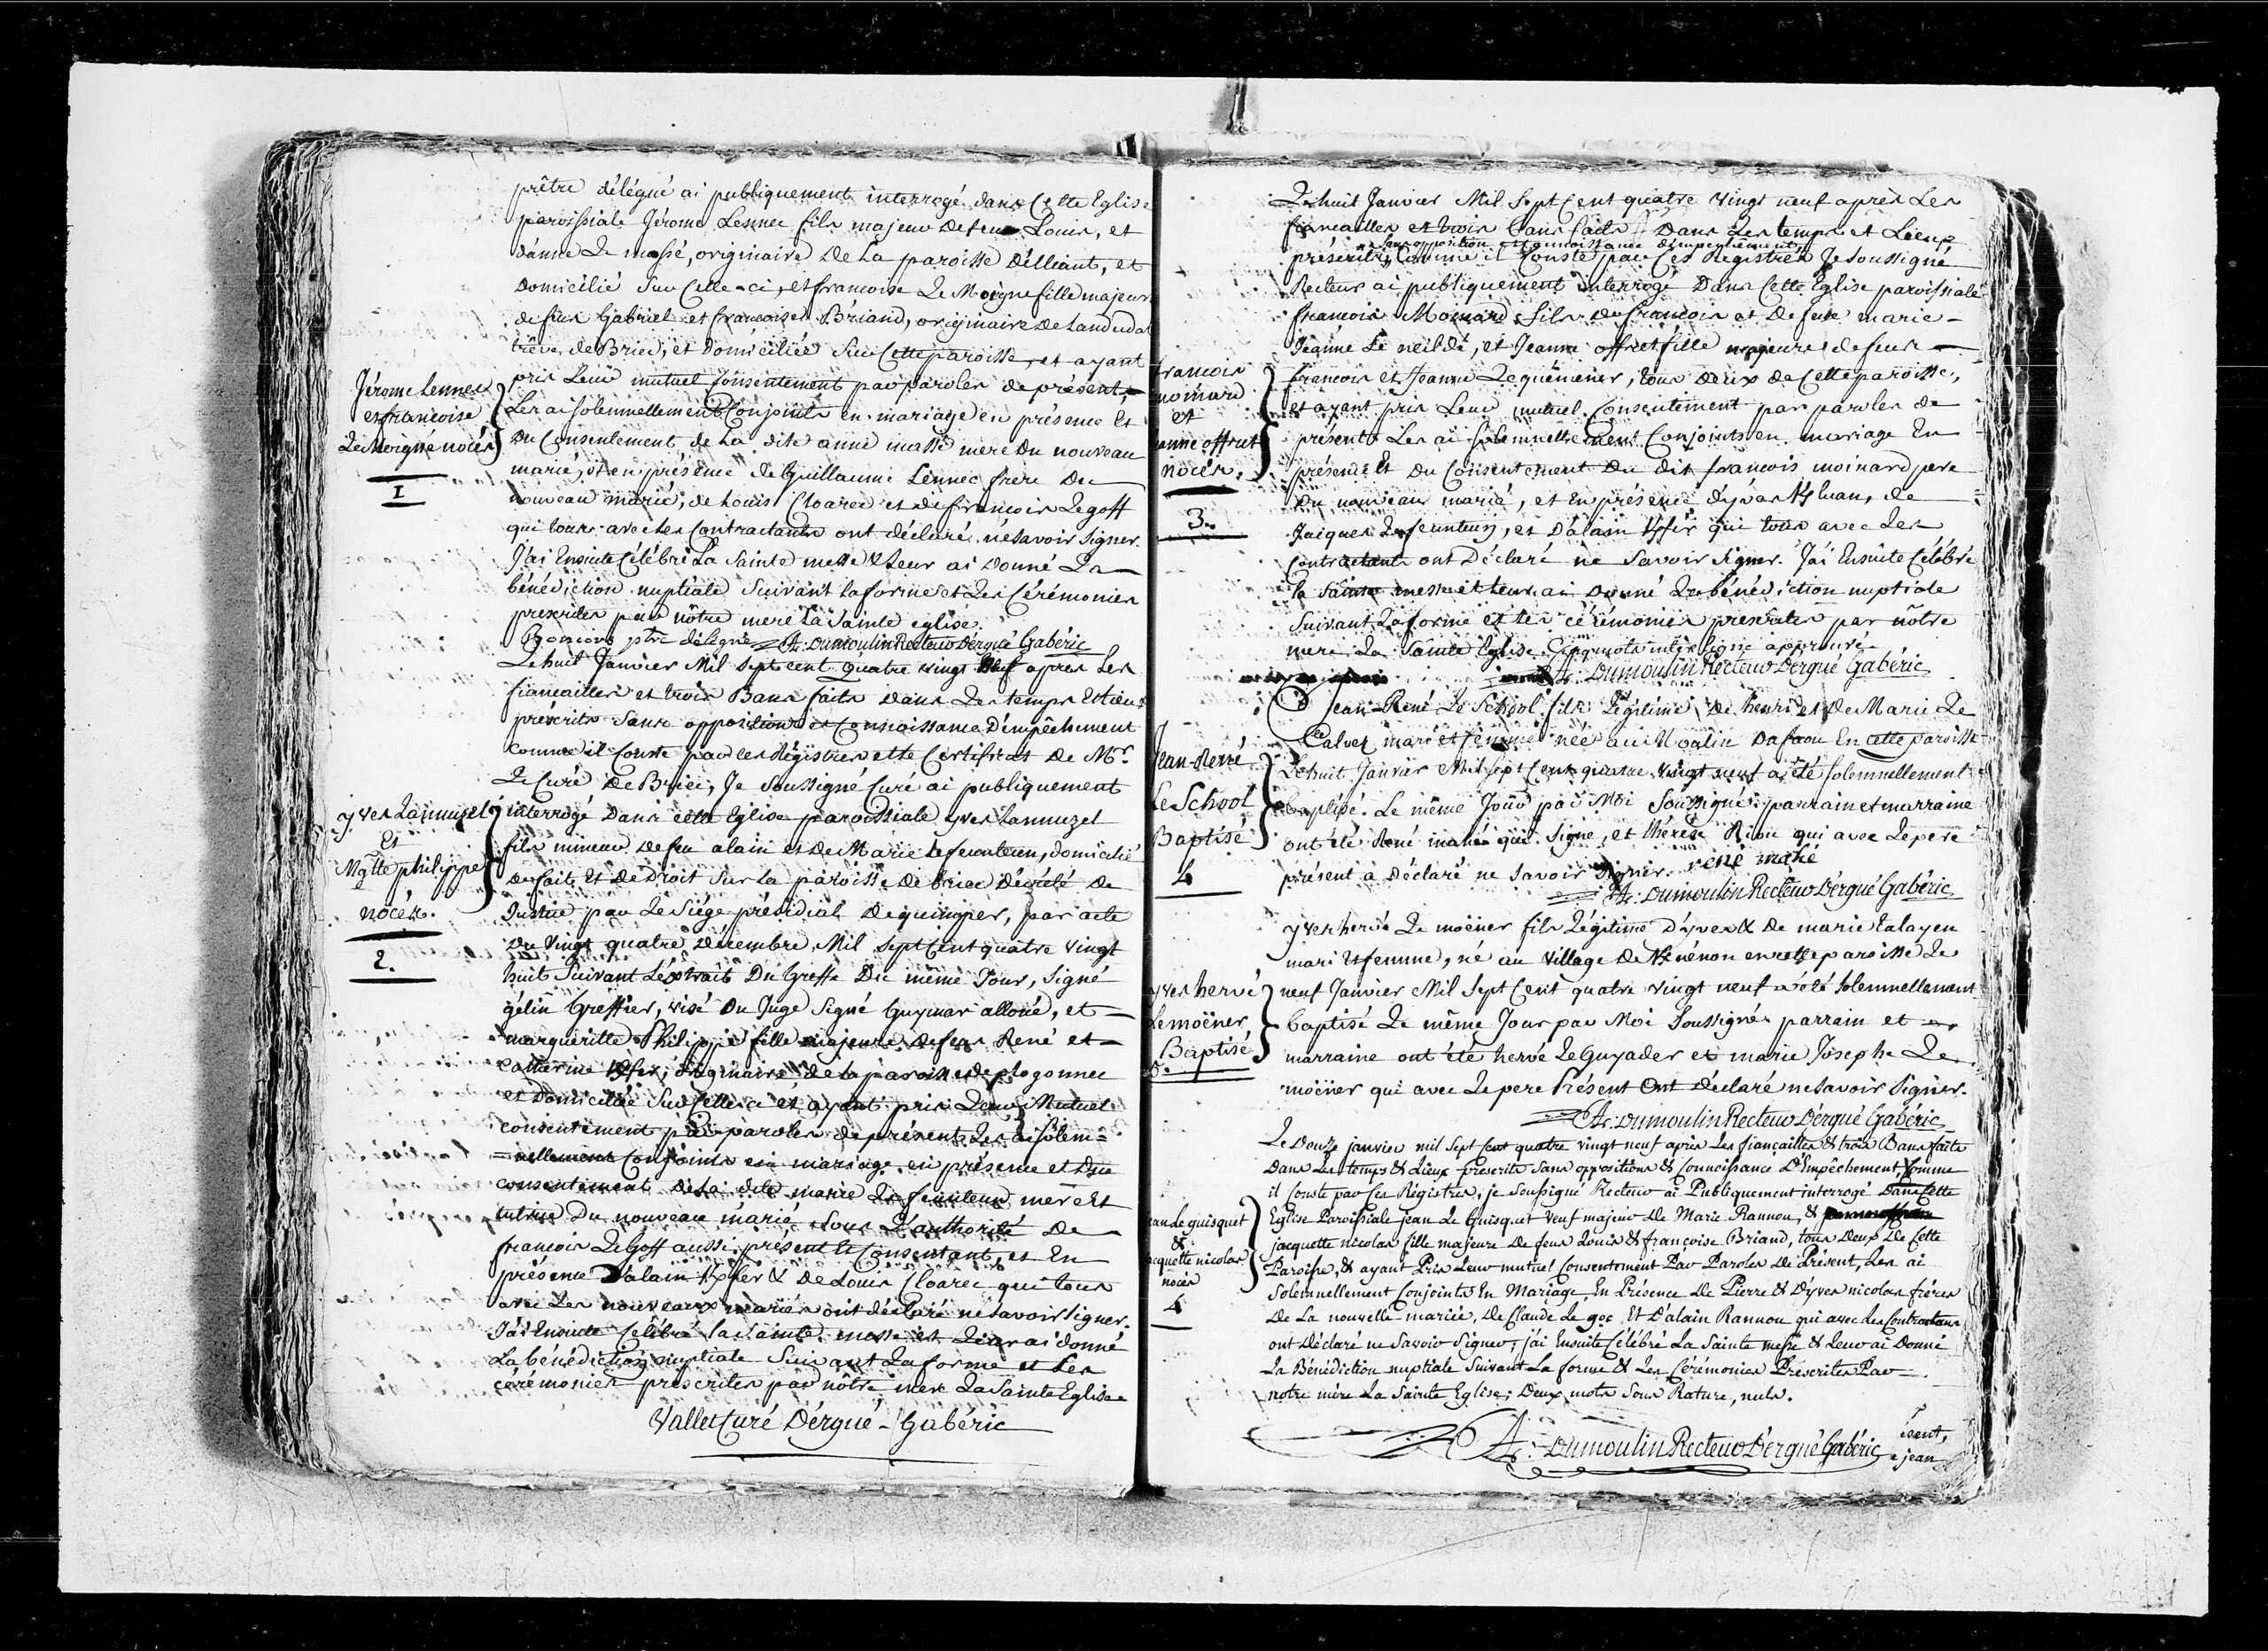 prêtre délégué ai publiquement interrogé dans Cette Eglise
paroissiale Jérome Lennec fils majeur de feu Louis, et
d'anne Le massé, originaire de La paroisse d'Elliant, et
Domicilié sur Celle-ci, et francoise Le Moigne fille majeure
de feus Gabriel et francoise Briand, originaire de Landudal
trêve de Briec, et domiciliée sur Cette paroisse, et ayant
pris Leur mutuel Consentement par paroles de présent,
Les ai solemnellement Conjoints en mariage en présence Et
Du Consentement de La dite anne massé mere du nouveau
marié, et en présence de Guillaume Lennec frere du
nouveau marié, de Louis Cloarec et de francois Legoff
qui tous avec les Contractants ont déclaré ne savoir signer.
J'ai Ensuite Célébré La Sainte messe & leur ai donné La
bénédiction nuptiale suivant la forme et Les Cérémonies
prescrites par nôtre mere La Sainte eglise.
ptre délégué A: Dumoulin Recteur d'Ergué Gabéric
Jérome Lennec
et francoise
Le Moigne nôces
1
Le huit Janvier Mil sept cent quatre vingt neuf apres Les
fiancailles et trois Bans faits dans Les temps et Lieux
préscrits sans opposition et Connoissance d'empêchement
comme il Conste par les Régistres et le Certificat de Mr.
Le Curé de Briec, Je soussigné Curé ai publiquement
interrogé dans cette Eglise paroissiale yves Lannuzel
fils mineur de feu alain et de Marie Le feunteun, domicilié
de fait et de droit sur La paroisse de briec décrété de
Justice par Le Siége présidial de quimper, par acte
du vingt quatre décembre Mil sept Cent quatre vingt
huit suivant L'extrait du Greffe du même Jour, signé
gélin Greffier, visé du Juge signé Guymar alloué, et
marguerite Philippe fille majeure de feus René et
catherine, originaire de la paroisse de plogonnec
et domiciliée sur Celle-ci et ayant pris Leur Mutuel
consentement par paroles de présent, Les ai solem=
=nellement conjoints en mariage en présence et du
consentement de La dite marie Le feunteun mere et
tutrice du nouveau marié sous L'authorité de
francois Le Goff aussi présent et Consentant, et En
présence d'alain & de Louis Cloarec qui tous
avec Les nouveaux mariés ont déclaré ne savoir signer.
J'ai Ensuite Célébré la Sainte messe et Leur ai donné
La bénédiction nuptiale suivant La forme et Les
cérémonies prescrites par nôtre mere La Sainte Eglise.
Vallet Curé d'Ergué-Gabéric
yves Lannuzel
Et
Mgtte philippe
nôces.
2.
Le huit Janvier Mil sept Cent quatre vingt neuf après Les
fiancailles et trois Bans faits dans Les temps et Lieux
sans opposition et Connoissance d'empêchement,
préscrits, Comme il Conste par Ces Registres Je soussigné
Recteur ai publiquement interrogé dans Cette Eglise paroissiale
francois Moinard fils de francois et de feue marie-
Jeanne, et Jeanne offret fille majeure de feus
francois et Jeanne Lequémener, tous deux de Cette paroisse,
et ayant pris Leur mutuel Consentement par paroles de
présent, Les ai solemnellement Conjoints en mariage En
présence Et du Consentement du dit francois moinard pere
du nouveau marié, et En présence d'yves, de
Jaiques Le feunteun, et d'alain qui tous avec Les
Contractants ont déclaré ne savoir signer. J'ai Ensuite Célébré
la Sainte messe et leur ai donné La bénédiction nuptiale
suivant La forme et Les cérémonies prescrites par nôtre
mere La Sainte Eglise. Cinq mots interligne approuvé
A: Dumoulin Recteur d'Ergué Gabéric
francois
moinard
et
Jeanne offret
nôces.
3.
Jean-René Le School fils Légitime de henri et de Marie Le
Calvez mari et femme, né au Moulin en cette paroisse
Le huit Janvier Mil sept Cent quatre vingt neuf a été solemnellement
baptisé Le même Jour par Moi soussigné. parrain et marraine
ont été René mahé qui signe, et thérese Riou qui avec Le pere
présent a déclaré ne savoir signer. rené mahé
A: Dumoulin Recteur d'Ergué Gabéric
Jean-René
Le School
Baptisé
4
yves hervé Le moëner fils Légitime d'yves & de marie Talayen
mari et femme, né au village de en cette paroisse Le
neuf Janvier Mil sept Cent quatre vingt neuf a été solemnellement
baptisé Le même Jour par Moi soussigné. parrain et
marraine ont été hervé Le Guyader et marie Josephe Le
moëner qui avec Le pere Présent ont déclaré ne savoir signer.
A: Dumoulin Recteur d'Ergué Gabéric
yves hervé
Le moëner,
Baptisé
5.
Le douze janvier mil sept Cent quatre vingt neuf après Les fiançailles & trois Bans faits
dans Les temps & Lieux prescrits sans opposition & Connoissance d'Empêchement, Comme
il Conste par Ces Régistres, je soussigné Recteur ai Publiquement interrogé dans Cette
Eglise Paroissiale jean Le Guisquet veuf majeur de Marie Rannou, &
jacquette nicolas fille majeure de feus Louis & françoise Briand, tous deux de Cette
Paroisse, & ayant Pris Leur mutuel Consentement Par Paroles de Présent, Les ai
solemnellement Conjoints En Mariage, En Présence de Pierre & d'yves nicolas fréres
de La nouvelle mariée, de Claude Le goc, Et d'alain Rannou qui avec les Contractans
ont déclaré ne savoir signer; j'ai Ensuite Célébré La Sainte messe & Leur ai Donné
La Bénédiction nuptiale suivant La forme & Les Cérémonies Préscrites Par
notre mère La Sainte Eglise; Deux mots sous Rature, nuls.
A: Dumoulin Recteur d'Ergué Gabéric
Jean Le guisquet
&
Jacquette nicolas
nôces
4
isent,
jean